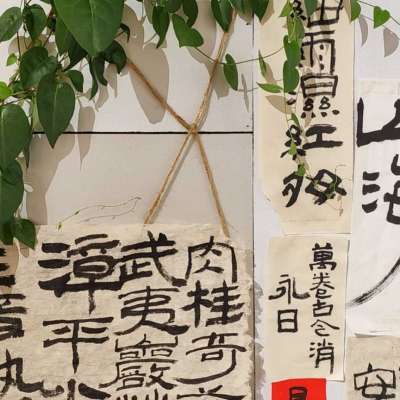 山海
細雨濕紅
萬卷古今消
永日
安
肉桂奇
武夷巖
漳平水